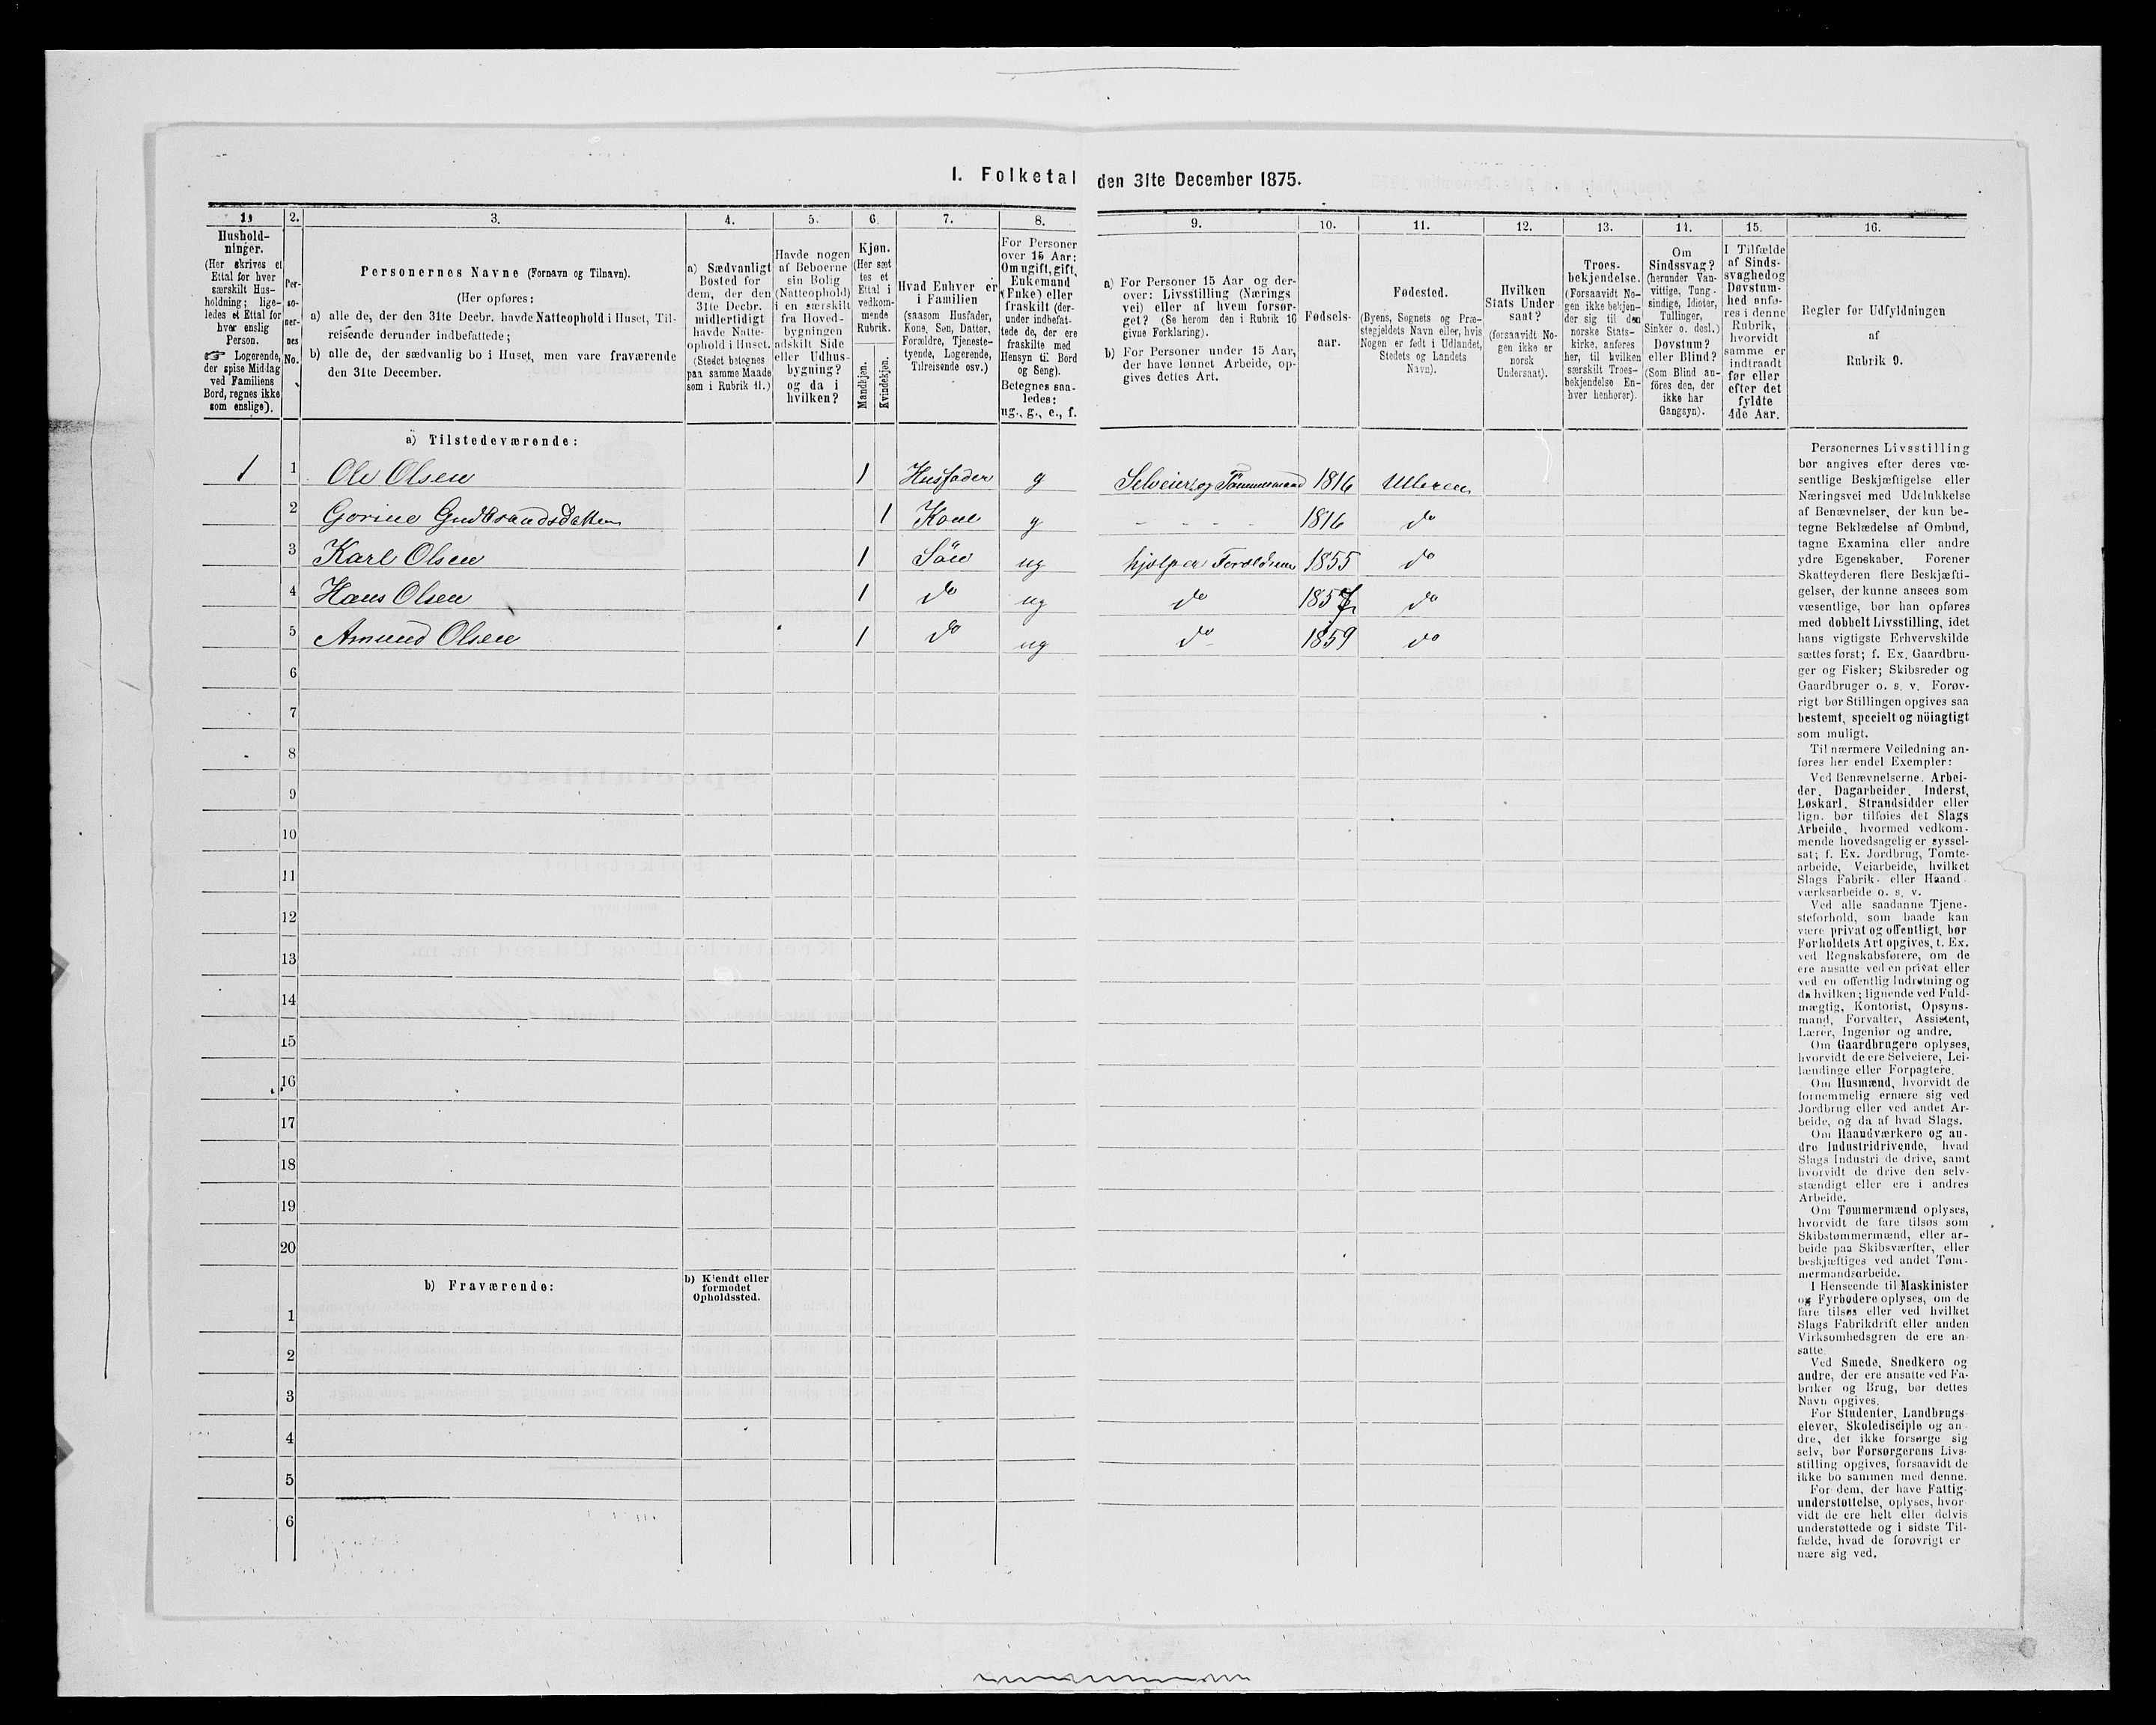 I. Folketal den 31te December 1875.
1. 2. 3. 4. 5. 6. 7. 8. 9. 10. 11. 12. 13. 14. 15. 16.
Hushold-
ninger.
(Her skrives et
Ettal for hver
særskilt Hus-
holdning; lige-
ledes et Ettal for
hver enslig
Person.
☞ Logerende,
der spise Middag
ved Familiens
Bord, regnes ikke
som enslige).
Per-
so-
ner-
nes
No.
Personernes Navne (Fornavn og Tilnavn).
(Her opføres:
a) alle de, der den 31te Decbr. havde Natteophold i Huset, Til-
reisende derunder indbefattede;
b) alle de, der sædvanlig bo i Huset, men vare fraværende
den 31te December.
a) Sædvanligt
Bosted for
dem, der den
31te Decbr.
midlertidigt
havde Natte-
ophold i Huset.
(Stedet betegnes
paa samme Maade
som i Rubrik 11.)
Havde nogen
af Beboerne
sin Bolig
(Natteophold)
i en særskilt
fra Hoved-
bygningen
adskilt Side
eller Udhus-
bygning?
og da i
hvilken?
Kjøn.
(Her sæt
tes et
Ettal i
vedkom-
mende
Rubrik.
Mandkjøn.
Kvindekjøn.
Hvad Enhver er
i Familien
(saasom Husfader,
Kone, Søn, Datter,
Forældre, Tjeneste-
tyende, Logerende,
Tilreisende osv.)
For Personer
over 15 Aar:
Om ugift, gift,
Enkemand
(Enke) eller
fraskilt (der-
under indbefat-
tede de, der ere
fraskilte med
Hensyn til Bord
og Seng).
Betegnes saa-
ledes:
ug., g., e., f.
a) For Personer 15 Aar og der-
over: Livsstilling (Nærings
vei) eller af hvem forsør-
get? (Se herom den i Rubrik 16
givne Forklaring).
b) For Personer under 15 Aar,
der have lønnet Arbeide, op-
gives dettes Art.
Fødsels-
aar.
Fødested.
(Byens, Sognets og Præ-
stegjeldets Navn eller, hvis
Nogen er født i Udlandet,
Stedets og Landets
Navn).
Hvilken
Stats Under
saat?
(forsaavidt No-
gen ikke er
norsk
Undersaat).
Troes-
bekjendelse.
(Forsaavidt No-
gen ikke bekjen-
der sig til den
norske Stats-
kirke, anføres
her, til hvilken
særskilt Troes-
bekjendelse En-
hver henhører).
Om
Sindssvag?
(herunder Van-
vittige, Tung-
sindige, Idioter,
Tullinger,
Sinker o. desl.)
Døvstum?
eller Blind?
(Som Blind an-
føres den, der
ikke har
Gangsyn).
I Tilfælde
af Sinds-
svaghed og
Døvstum-
hed anfø-
res i denne
Rubrik,
hvorvidt
samme er
indtraadt
før eller
efter det
fyldte
4de Aar.
Regler for Udfyldningen
af
Rubrik 9.
a) Tilstedeværende:
1 1 Ole Olsen 1 Husfader g Selveier og Tømmermand 1816 Ulleren
2 Gorine Gudbrandsdatter 1 Kone g - - - - 1816 do
3 Karl Olsen 1 Søn ug hjelper Forældrene 1855 do
4 Hans Olsen 1 do ug do 1857 do
5 Amund Olsen 1 do ug do 1859 do
6
7
8
9
10
11
12
13
14
15
16
17
18
19
20
b) Fraværende:
b) Kjendt eller
formodet
Opholdssted.
1
2
3
4
5
6
Personernes Livsstilling
bør angives efter deres væ-
sentlige Beskjæftigelse eller
Næringsvei med Udelukkelse
af Benævnelser, der kun be-
tegne Beklædelse af Ombud,
tagne Examina eller andre
ydre Egenskaber. Forener
Skatteyderen flere Beskjæfti-
gelser, der kunne ansees som
væsentlige, bør han opføres
med dobbelt Livsstilling, idet
hans vigtigste Erhvervskilde
sættes først; f. Ex. Gaardbru-
ger og Fisker; Skibsreder og
Gaardbruger o. s. v. Forøv-
rigt bør Stillingen opgives saa
bestemt, specielt og nöiagtigt
som muligt.
Til nærmere Veiledning an-
føres her endel Exempler:
Ved Benævnelserne. Arbei-
der, Dagarbeider, Inderst,
Løskarl, Strandsidder eller
lign. bør tilføies det Slags
Arbeide, hvormed vedkom-
mende hovedsagelig er syssel-
sat; f. Ex. Jordbrug, Tomte-
arbeide, Veiarbeide, hvilket
Slags Fabrik- eller Haand
værksarbeide o. s. v.
Ved alle saadanne Tjene-
steforhold, som baade kan
være privat og offentligt, bør
Forholdets Art opgives, t. Ex.
ved Regnskabsførere, om de
ere ansatte ved en privat eller
ved en offentlig Indretning og
da hvilken; lignende ved Fuld-
mægtig, Kontorist, Opsyns-
mand, Forvalter, Assistent,
Lærer, Ingeniør og andre.
Om Gaardbrugere oplyses,
hvorvidt de ere Selveiere, Lei-
lændinge eller Forpagtere.
Om Husmænd, hvorvidt de
fornemmelig ernære sig ved
Jordbrug eller ved andet Ar-
beide, og da af hvad Slags.
Om Haandværkere og an-
dre Industridrivende, hvad
Slags Industri de drive, samt
hvorvidt de drive den selv-
stændigt eller ere i andres
Arbeide.
Om Tømmermænd oplyses,
hvorvidt de fare tilsøs som
Skibstømmermænd, eller ar-
beide paa Skibsværfter, eller
beskjæftiges ved andet Tøm-
mermandsarbeide.
I Henseende til Maskinister
og Fyrbødere oplyses, om de
fare tilsøs eller ved hvilket
Slags Fabrikdrift eller anden
Virksomhedsgren de ere an-
satte.
Ved Smede, Snedkere og
andre, der ere ansatte ved Fa-
briker og Brug, bør dettes
Navn opgives.
For Studenter, Landbrugs-
elever, Skoledisciple og an
dre, der ikke forsørge sig
selv, bør Forsørgerens Livs-
stilling opgives, forsaavidt de
ikke bo sammen med denne.
For dem, der have Fattig-
understøttelse, oplyses, hvor-
vidt de ere helt eller delvis
understøttede og i sidste Til-
fælde, hvad de forøvrigt er
nære sig ved.